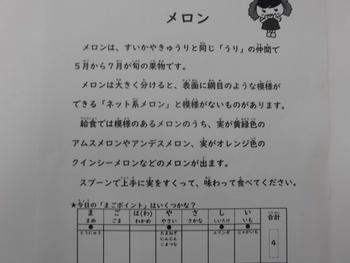 メロン
メロンは、すいかやきゅうりと同じ「うり」の仲間で
５月から７月が旬の果物です。
メロンは大きく分けると、表面に網目のような模様が
できる「ネット系メロン」と模様がないものがあります。
給食では模様のあるメロンのうち、実が黄緑色の
アムスメロンやアンデスメロン、実がオレンジ色の
クインシーメロンなどのメロンが出ます。
スプーンで上手に実をすくって、味わって食べてください。
★今日の「まごポイント」はいくつかな？
ま ご は(わ) や さ し い 合計
まめ ごま わかめ やさい さかな しいたけ いも
● ● ● ● 4
とうにゅう たまねぎ エリンギ じゃがいも
にんじん
こまつな